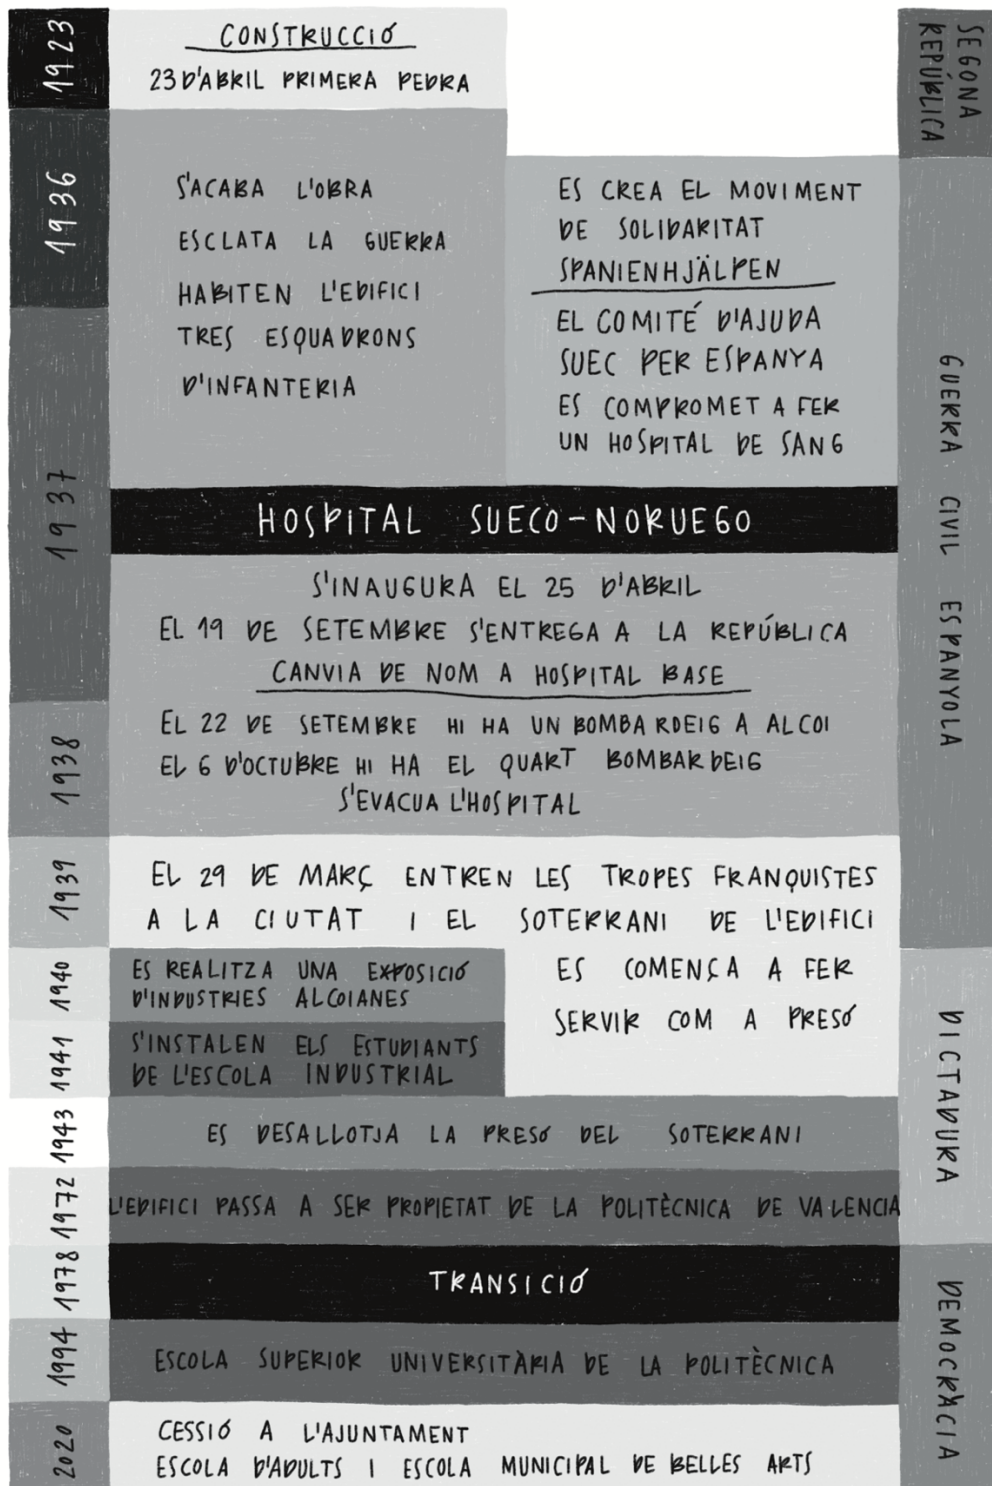 1923
CONSTRUCCIÓ
23 D'ABRIL PRIMERA PEDRA
SEGONA
REPÚBLICA
1936
S'ACABA L'OBRA
ESCLATA LA GUERRA
HABITEN L'EDIFICI
TRES ESQUADRONS
D'INFANTERIA
ES CREA EL MOVIMENT
DE SOLIDARITAT
SPANIENHJÄLPEN
EL COMITÉ D'AJUDA
SUEC PER ESPANYA
ES COMPROMET A FER
UN HOSPITAL DE SANG
GUERRA CIVIL ESPANYOLA
1937
HOSPITAL SUECO-NORUEGO
S'INAUGURA EL 25 D'ABRIL
EL 19 DE SETEMBRE S'ENTREGA A LA REPÚBLICA
CANVIA DE NOM A HOSPITAL BASE
1938
EL 22 DE SETEMBRE HI HA UN BOMBARDEIG A ALCOI
EL 6 D'OCTUBRE HI HA EL QUART BOMBARDEIG
S'EVACUA L'HOSPITAL
1939
EL 29 DE MARÇ ENTREN LES TROPES FRANQUISTES
A LA CIUTAT I EL SOTERRANI DE L'EDIFICI
ES COMENÇA A FER
SERVIR COM A PRESÓ
1940
ES REALITZA UNA EXPOSICIÓ
D'INDUSTRIES ALCOIANES
1941
S'INSTALEN ELS ESTUDIANTS
DE L'ESCOLA INDUSTRIAL
DICTADURA
1943
ES DESALLOTJA LA PRESÓ DEL SOTERRANI
1972
L'EDIFICI PASSA A SER PROPIETAT DE LA POLITÈCNICA DE VALENCIA
1978
TRANSICIÓ
DEMOCRÀCIA
1994
ESCOLA SUPERIOR UNIVERSITÀRIA DE LA POLITÈCNICA
2020
CESSIÓ A L'AJUNTAMENT
ESCOLA D'ADULTS I ESCOLA MUNICIPAL DE BELLES ARTS